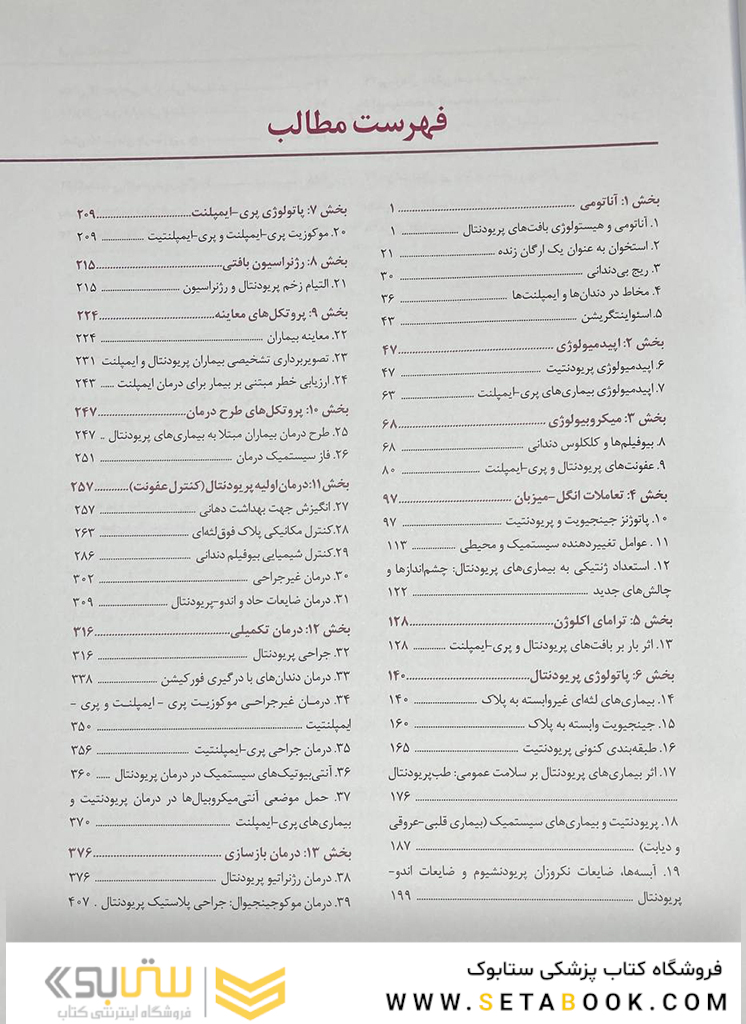 فهرست مطالب
بخش ۱: آناتومی ........ ۱
۱. آناتومی و هیستولوژی بافت‌های پریودنتال ........ ۱
۲. استخوان به عنوان یک ارگان زنده ........ ۲۱
۳. ریج بی‌دندانی ........ ۳۰
۴. مخاط در دندان‌ها و ایمپلنت‌ها ........ ۳۶
۵. اسئواینتگریشن ........ ۴۳
بخش ۲: اپیدمیولوژی ........ ۴۷
۶. اپیدمیولوژی پریودنتیت ........ ۴۷
۷. اپیدمیولوژی بیماری‌های پری-ایمپلنت ........ ۶۳
بخش ۳: میکروبیولوژی ........ ۶۸
۸. بیوفیلم‌ها و کلکلوس دندانی ........ ۶۸
۹. عفونت‌های پریودنتال و پری-ایمپلنت ........ ۸۰
بخش ۴: تعاملات انگل-میزبان ........ ۹۷
۱۰. پاتوژنز جینجیویت و پریودنتیت ........ ۹۷
۱۱. عوامل تغییردهنده سیستمیک و محیطی ........ ۱۱۳
۱۲. استعداد ژنتیکی به بیماری‌های پریودنتال: چشم‌اندازها و
چالش‌های جدید ........ ۱۲۲
بخش ۵: ترامای اکلوژن ........ ۱۲۸
۱۳. اثر بار بر بافت‌های پریودنتال و پری-ایمپلنت ........ ۱۲۸
بخش ۶: پاتولوژی پریودنتال ........ ۱۴۰
۱۴. بیماری‌های لثه‌ای غیروابسته به پلاک ........ ۱۴۰
۱۵. جینجیویت وابسته به پلاک ........ ۱۶۰
۱۶. طبقه‌بندی کنونی پریودنتیت ........ ۱۶۵
۱۷. اثر بیماری‌های پریودنتال بر سلامت عمومی: طب‌پریودنتال
........ ۱۷۶
۱۸. پریودنتیت و بیماری‌های سیستمیک (بیماری قلبی-عروقی
و دیابت) ........ ۱۸۷
۱۹. آبسه‌ها، ضایعات نکروزان پریودنشیوم و ضایعات اندو-
پریودنتال ........ ۱۹۹
بخش ۷: پاتولوژی پری-ایمپلنت ........ ۲۰۹
۲۰. موکوزیت پری-ایمپلنت و پری-ایمپلنتیت ........ ۲۰۹
بخش ۸: رژنراسیون بافتی ........ ۲۱۵
۲۱. التیام زخم پریودنتال و رژنراسیون ........ ۲۱۵
بخش ۹: پروتکل‌های معاینه ........ ۲۲۴
۲۲. معاینه بیماران ........ ۲۲۴
۲۳. تصویربرداری تشخیصی بیماران پریودنتال و ایمپلنت ۲۳۱
۲۴. ارزیابی خطر مبتنی بر بیمار برای درمان ایمپلنت ..... ۲۴۳
بخش ۱۰: پروتکل‌های طرح درمان ........ ۲۴۷
۲۵. طرح درمان بیماران مبتلا به بیماری‌های پریودنتال .. ۲۴۷
۲۶. فاز سیستمیک درمان ........ ۲۵۱
بخش۱۱: درمان اولیه پریودنتال (کنترل عفونت) ........ ۲۵۷
۲۷. انگیزش جهت بهداشت دهانی ........ ۲۵۷
۲۸. کنترل مکانیکی پلاک فوق‌لثه‌ای ........ ۲۶۳
۲۹. کنترل شیمیایی بیوفیلم دندانی ........ ۲۸۶
۳۰. درمان غیرجراحی ........ ۳۰۲
۳۱. درمان ضایعات حاد و اندو-پریودنتال ........ ۳۰۹
بخش ۱۲: درمان تکمیلی ........ ۳۱۶
۳۲. جراحی پریودنتال ........ ۳۱۶
۳۳. درمان دندان‌های با درگیری فورکیشن ........ ۳۳۸
۳۴. درمان غیرجراحی موکوزیت پری - ایمپلنت و پری -
ایمپلنتیت ........ ۳۵۰
۳۵. درمان جراحی پری-ایمپلنتیت ........ ۳۵۶
۳۶. آنتی‌بیوتیک‌های سیستمیک در درمان پریودنتال ..... ۳۶۰
۳۷. حمل موضعی آنتی‌میکروبیال‌ها در درمان پریودنتیت و
بیماری‌های پری-ایمپلنت ........ ۳۷۰
بخش ۱۳: درمان بازسازی ........ ۳۷۶
۳۸. درمان رژنراتیو پریودنتال ........ ۳۷۶
۳۹. درمان موکوجینجیوال: جراحی پلاستیک پریودنتال . ۴۰۷
فروشگاه کتاب پزشکی ستابوک
WWW.SETABOOK.COM
ستابوک
فروشگاه اینترنتی کتاب